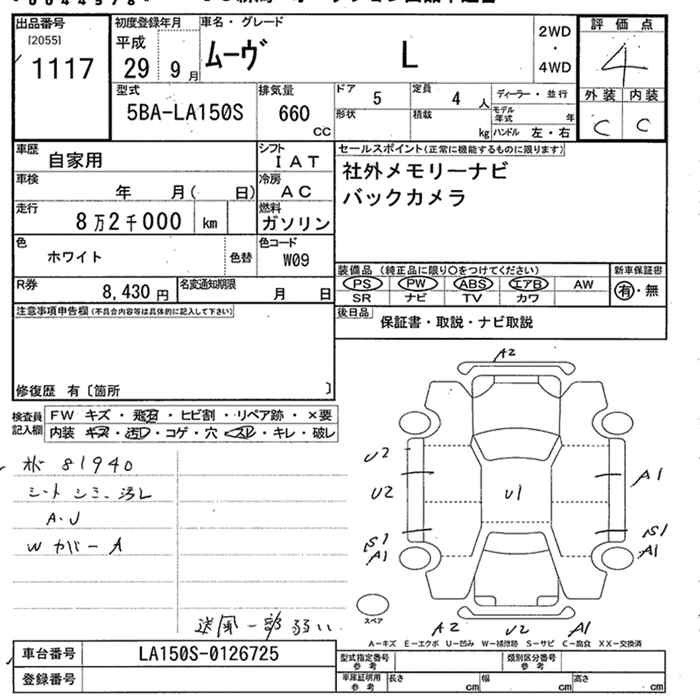 出品番号
[2055]
1117
初度登録年月
平成
29 9月
車名・グレード
ムーヴ L
2WD
・
4WD
評価点
4
外装 内装
C C
型式
5BA-LA150S
排気量
660
CC
ドア
5
定員
4 人
ディーラー・並行
形状
積載
kg
モデル年式 年
ハンドル 左・右
車歴
自家用
シフト
IAT
車検
年 月( 日)
冷房
AC
走行
8万2千000 km
燃料
ガソリン
色
ホワイト
色替
色コード
W09
R券
8,430円
名変通知期限
月 日
セールスポイント(正常に機能するものに限ります)
社外メモリーナビ
バックカメラ
装備品 (純正品に限り○をつけてください)
PS PW ABS エアB AW
SR ナビ TV カワ
新車保証書
有・無
後日品
保証書・取説・ナビ取説
注意事項申告欄(不具合内容等は具体的に記入して下さい)
修復歴 有〔箇所 〕
検査員
記入欄
FW キズ・飛石・ヒビ割・リペア跡・×要
内装 キズ・汚れ・コゲ・穴・スレ・キレ・破レ
81940
シート シミ、汚レ
A・U
W カバーA
送風一部弱い
A2
U2
U2
S1
A1
U1
A1
S1
A1
A2 U2 A1
スペア
A-キズ E-エクボ U-凹み W-補修跡 S-サビ C-腐食 XX-交換済
車台番号
LA150S-0126725
登録番号
型式指定番号
参考
類別区分番号
参考
車庫証明用
参考
長さ cm 幅 cm 高さ cm